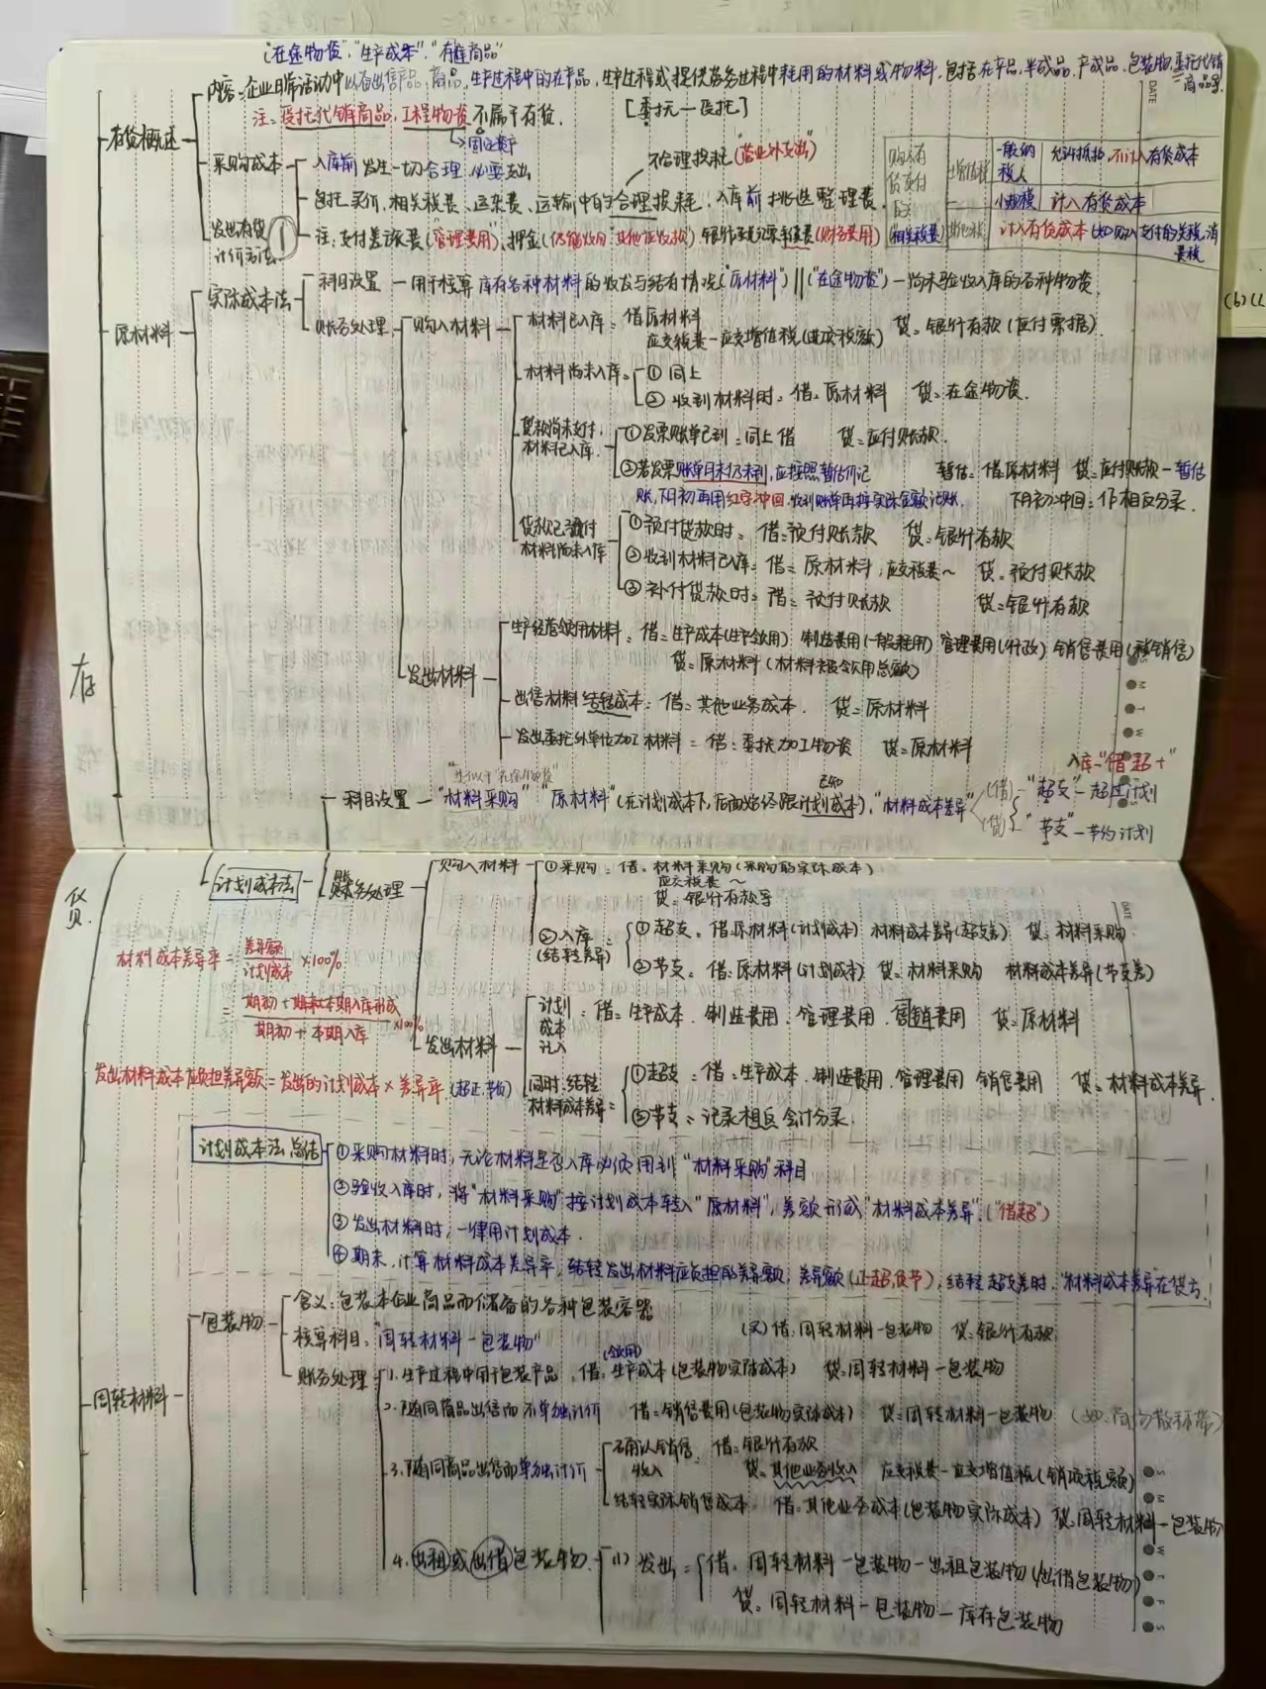 "在途物资"."生产成本"."存货商品"
内容:企业日常活动中以备出售产品,商品,生产过程中的在产品,生产过程或提供劳务过程中耗用的材料或物料.包括在产品,半成品,产成品,包装物,委托代销商品等.
注:受托代销商品,工程物资不属于存货.
[委托—受托]
固定资产
存货概述
采购成本
入库前发生一切合理必要支出
不合理损耗(营业外支出)
包括买价,相关税费、运杂费、运输中的合理损耗、入库前挑选整理费.
注:支付差旅费(管理费用),押金(仍能收回"其他应收款"),银行承兑汇票手续费(财务费用)
发出存货计价方法
1
购入存货支付的(相关税费)
增值税
一般纳税人
允许抵扣,不计入存货成本
小规模
计入存货成本
其他税
计入存货成本(如购入支付的关税,消费税
存货
原材料
实际成本法
科目设置—用于核算库存各种材料的收发与结存情况("原材料")||("在途物资")—尚未验收入库的各种物资.
账务处理
购入材料
材料已入库:借:原材料
应交税费—应交增值税(进项税额) 贷:银行存款(应付票据)
材料尚未入库
①同上
②收到材料时:借:原材料 贷:在途物资.
货款尚未支付,材料已入库
①发票账单已到:同上借 贷:应付账款.
②若发票账单月末仍未到,应按照暂估价记 暂估:借:原材料 贷:应付账款—暂估
账,下月初再用红字冲回,收到账单再按实际金额记账. 下月初冲回:作相反分录.
货款已预付材料尚未入库
①预付货款时:借:预付账款 贷:银行存款
②收到材料已入库:借:原材料,应交税费~ 贷:预付账款
③补付货款时:借:预付账款 贷:银行存款
发出材料
生产经营领用材料:借:生产成本(生产领用) 制造费用(一般耗用) 管理费用(行政) 销售费用(销售)
贷:原材料(材料被领用总额)
出售材料结转成本:借:其他业务成本. 贷:原材料
发出委托外单位加工材料:借:委托加工物资 贷:原材料
计划成本法
科目设置—"材料采购" "原材料"(在计划成本下,后面始终跟计划成本),"材料成本差异"
入库—"借超+"
(借)—"超支"—超过计划
(贷)—"节支"—节约计划
账务处理
购入材料
①采购:借:材料采购(采购的实际成本)
应交税费~
贷:银行存款等
②入库(结转差异)
①超支:借:原材料(计划成本) 材料成本差异(超支差) 贷:材料采购
②节支:借:原材料(计划成本) 贷:材料采购 材料成本差异(节支差)
材料成本差异率=差异额/计划成本×100%
=期初+本期入库形成/期初+本期入库×100%
发出材料
计划成本计入:借:生产成本.制造费用.管理费用.销售费用 贷:原材料
发出材料成本应负担差异额=发出的计划成本×差异率.(超正,节负)
同时,结转材料成本差异
①超支:借:生产成本.制造费用.管理费用 销售费用 贷:材料成本差异.
②节支:记录相反会计分录.
计划成本法总结
①采购材料时,无论材料是否入库必须用到"材料采购"科目
②验收入库时,将"材料采购"按计划成本转入"原材料",差额形成"材料成本差异".("借超")
③发出材料时,一律用计划成本.
④期末,计算材料成本差异率,结转发出材料应负担的差异额,差异额(正超,负节),结转超支差时,"材料成本差异在贷方.
周转材料
包装物
含义:包装本企业商品而储备的各种包装容器
核算科目:"周转材料—包装物"
(买)借:周转材料—包装物 贷:银行存款
账务处理
1.生产过程中用于包装产品,借:生产成本(包装物实际成本) 贷:周转材料—包装物
(领用)
2.随同商品出售而不单独计价 借:销售费用(包装物实际成本) 贷:周转材料—包装物
3.随同商品出售而单独计价
确认销售收入 借:银行存款
贷:其他业务收入 应交税费—应交增值税(销项税额)
结转实际销售成本 借:其他业务成本(包装物实际成本) 贷:周转材料—包装物
4.出租或出借包装物
(1)发出:借:周转材料—包装物—出租包装物(出借包装物)
贷:周转材料—包装物—库存包装物